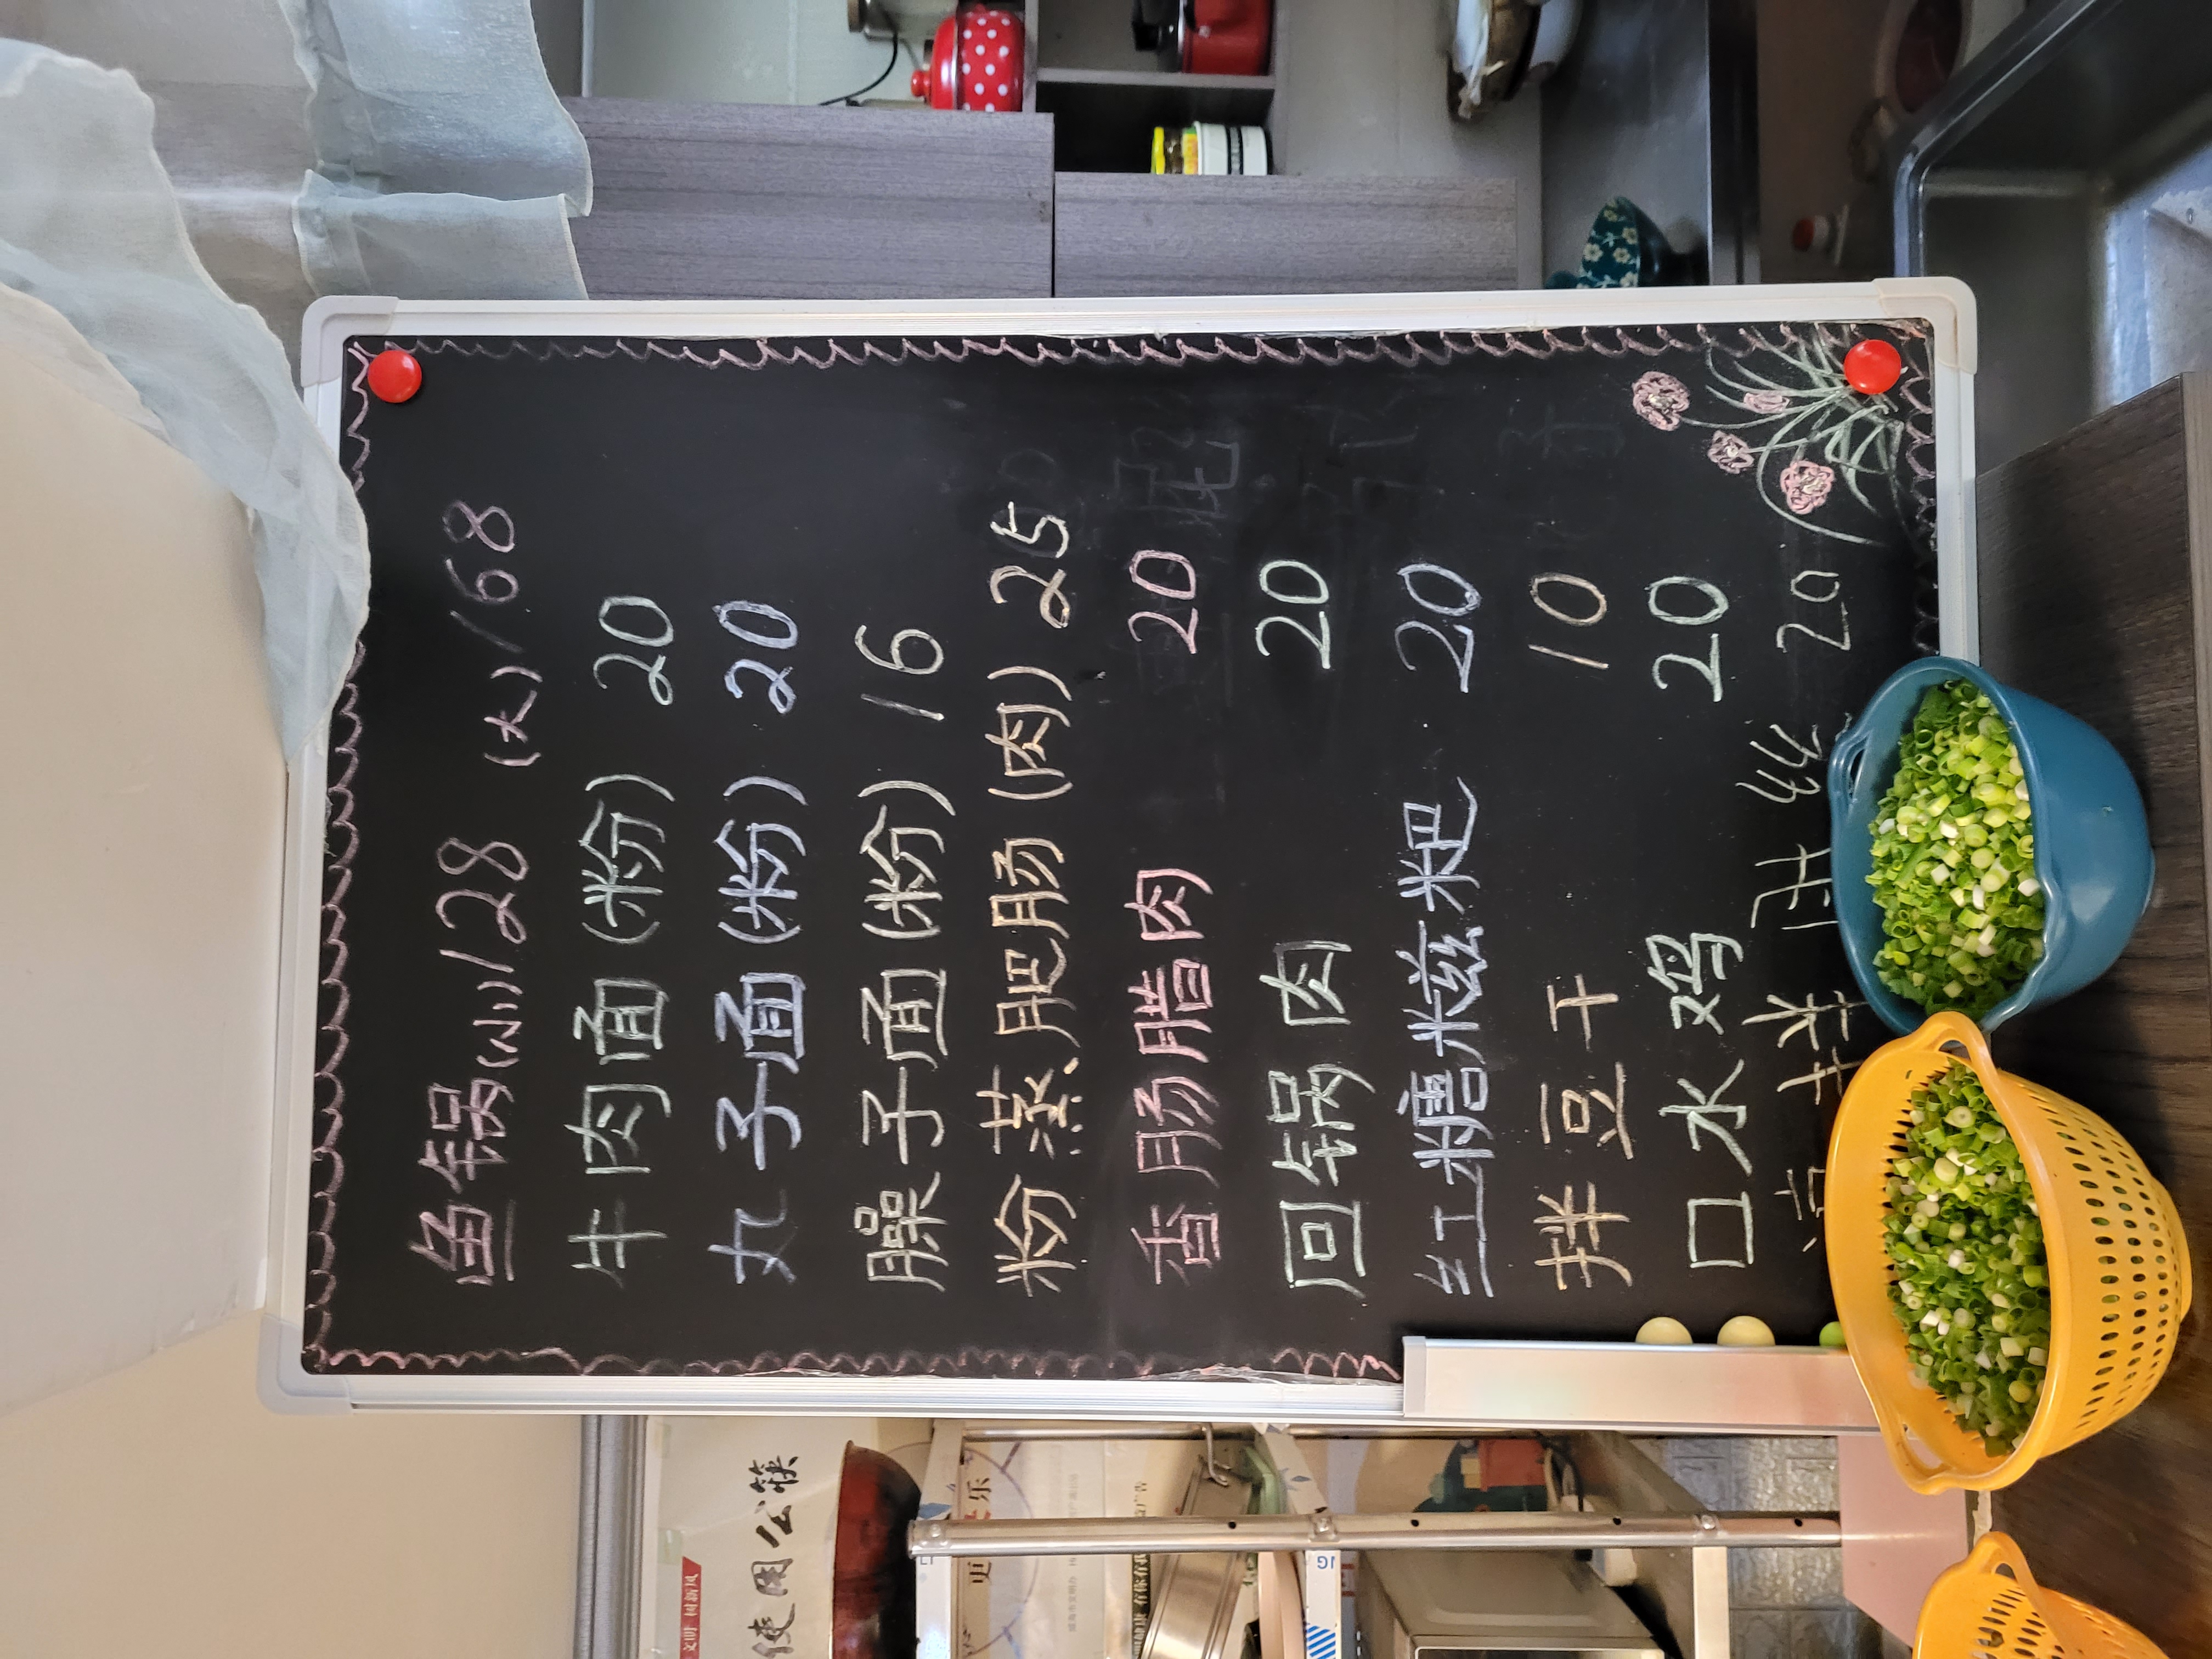 鱼锅(小)128 (大)168
牛肉面(粉) 20
丸子面(粉) 20
臊子面(粉) 16
粉蒸肥肠(肉) 25
香肠腊肉 20
回锅肉 20
红糖糍粑 20
拌豆干 10
口水鸡 20
凉拌肚丝 20
使用公筷
文明 树新风